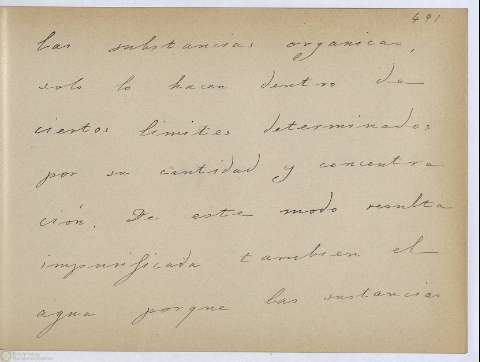 491
las substancias organicas,
solo lo hacen dentro de
ciertos limites determinados
por su cantidad y concentra
ción. De este modo resulta
impurificada tambien el
agua porque las sustancias